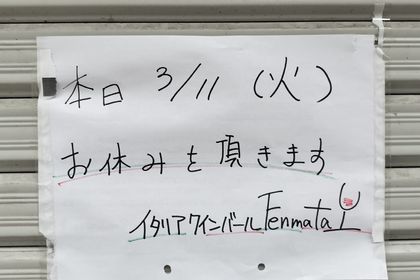 本日 3/11 (火)
お休みを頂きます
イタリアワインバールTenmata